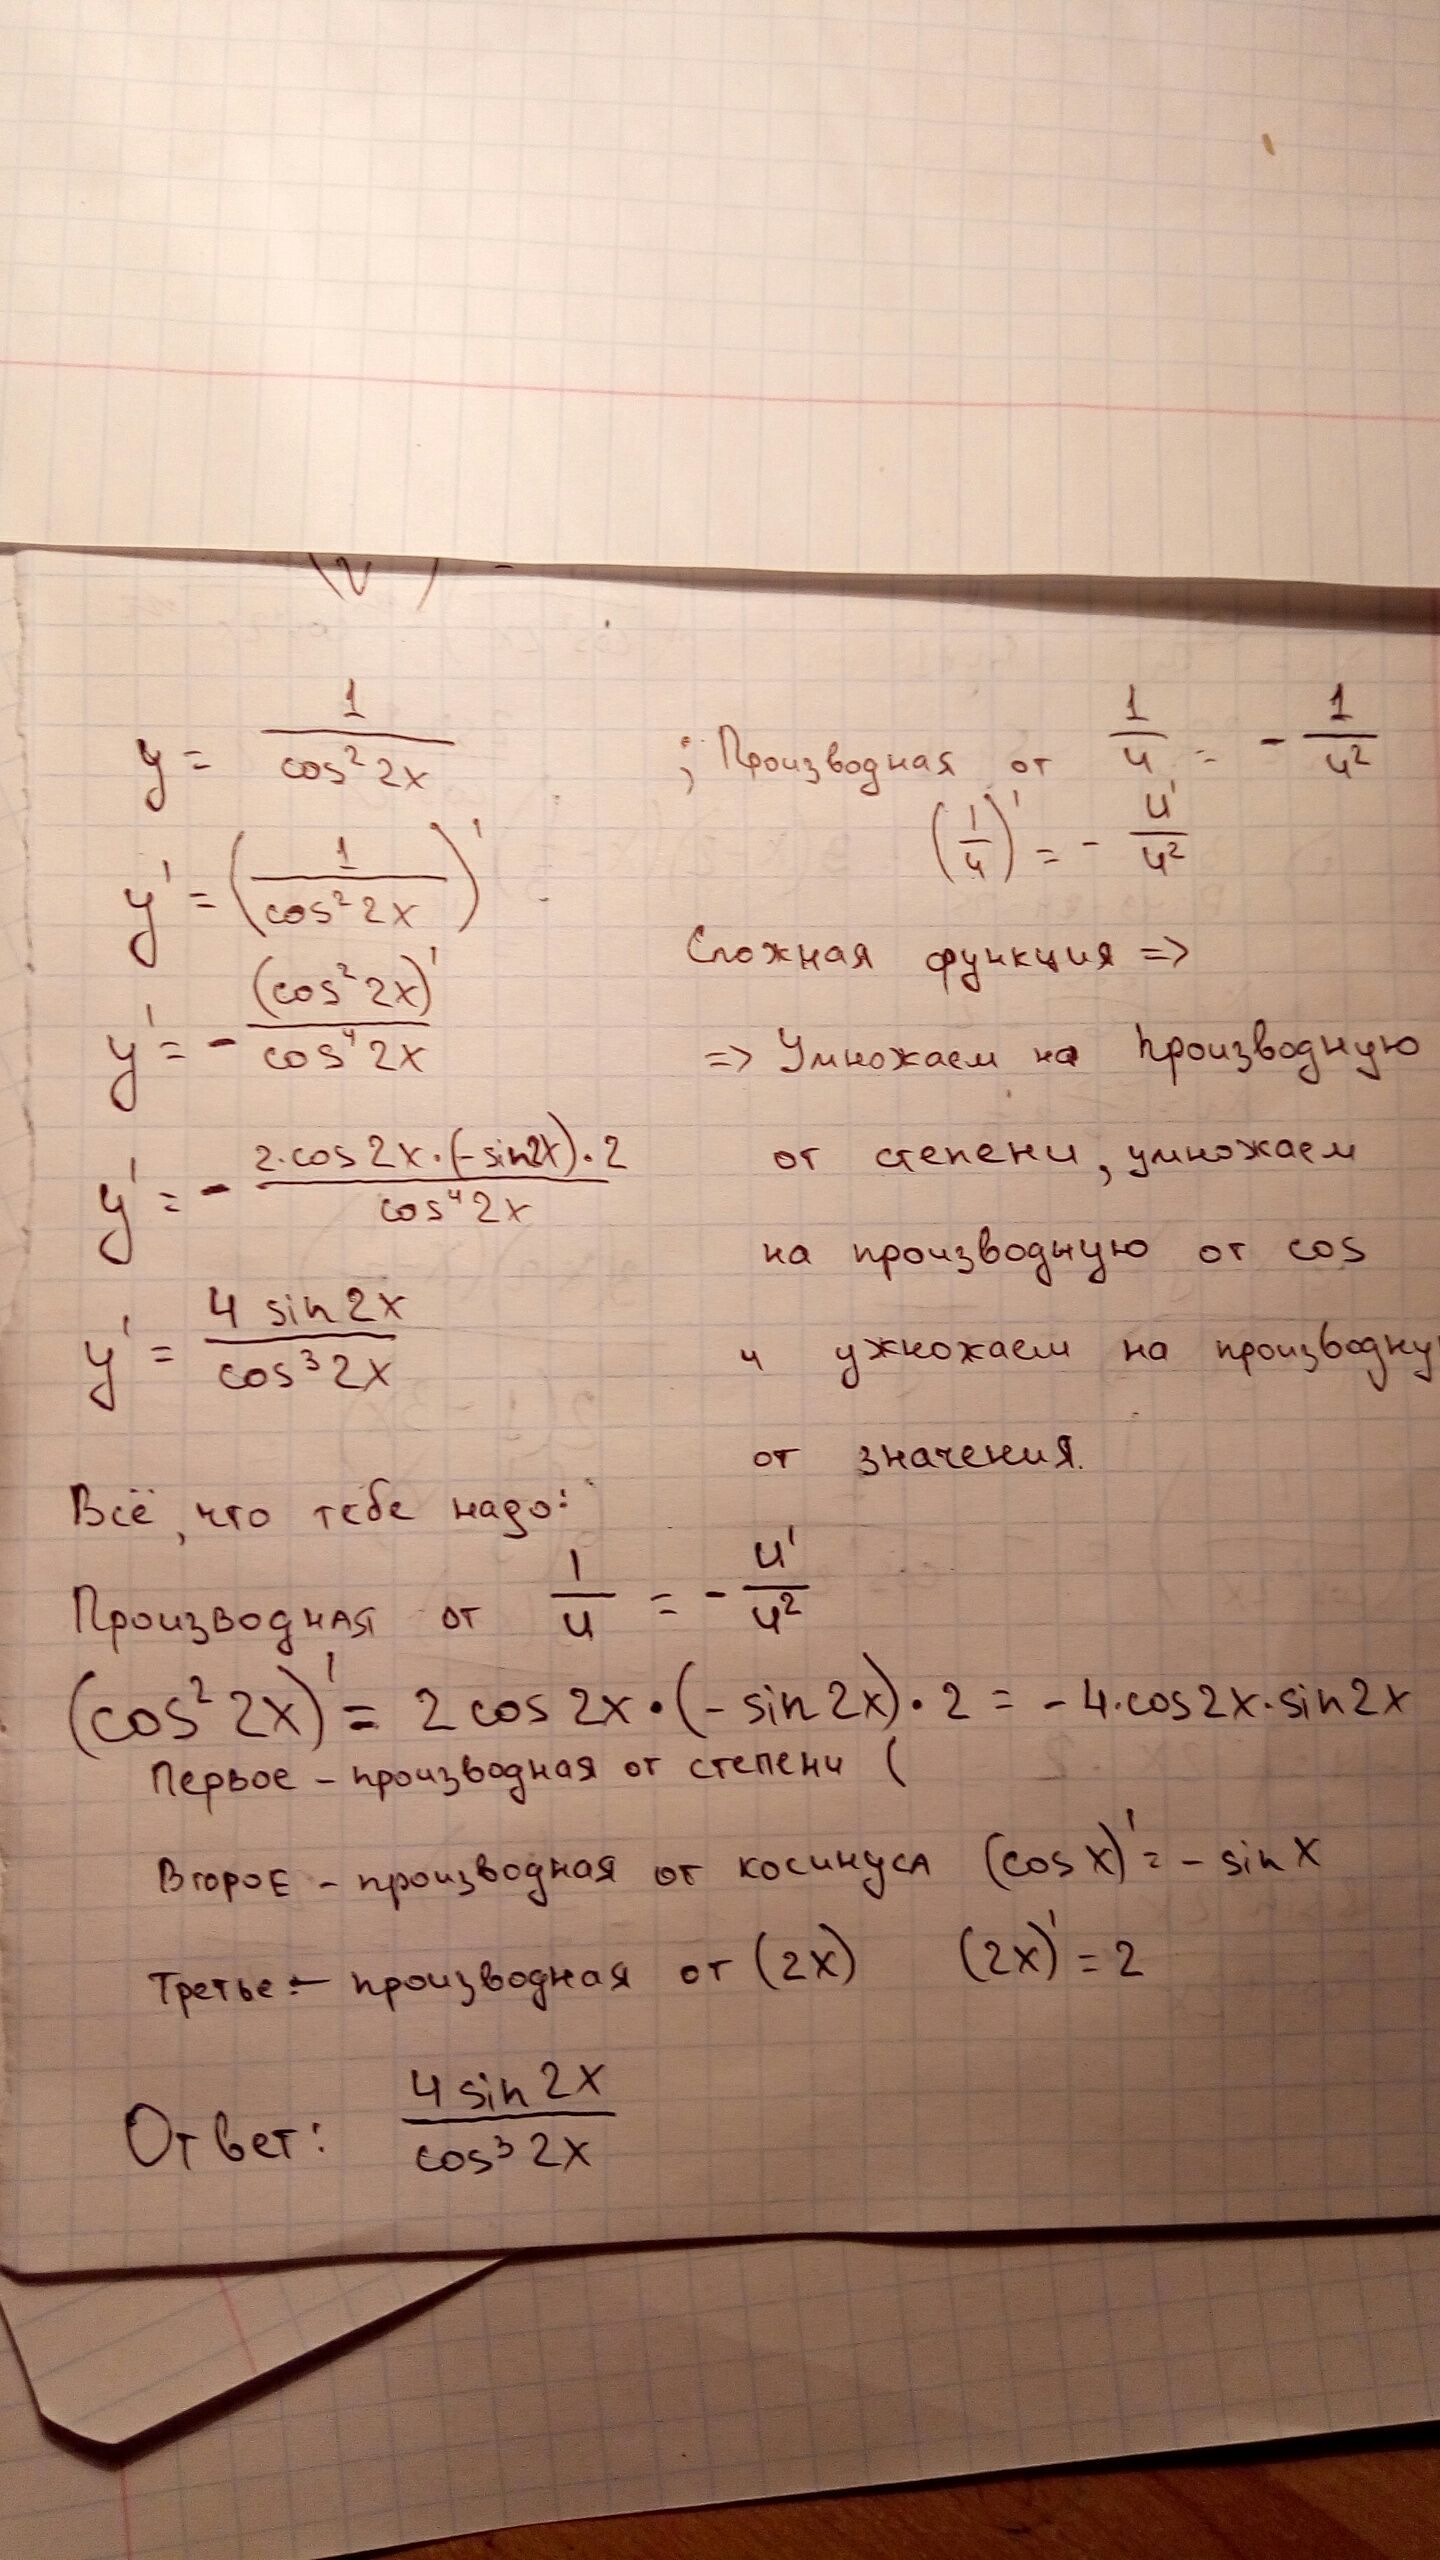 y = 1/cos² 2x ; Производная от 1/u = - 1/u²
(1/u)' = - u'/u²
y' = (1/cos² 2x)'
Сложная функция =>
y' = - (cos² 2x)'/cos⁴ 2x
=> Умножаем на производную
y' = - 2·cos 2x·(-sin2x)·2/cos⁴ 2x
от степени, умножаем
на производную от cos
y' = 4 sin 2x/cos³ 2x
и ужножаем на производну
от значения.
Всё, что тебе надо:
Производная от 1/u = - u'/u²
(cos² 2x)' = 2 cos 2x · (- sin 2x) · 2 = - 4·cos2x·sin2x
Первое - производная от степени (
Второе - производная от косинуса (cos x)' = - sin x
Третье - производная от (2x) (2x)' = 2
Ответ: 4 sin 2x/cos³ 2x